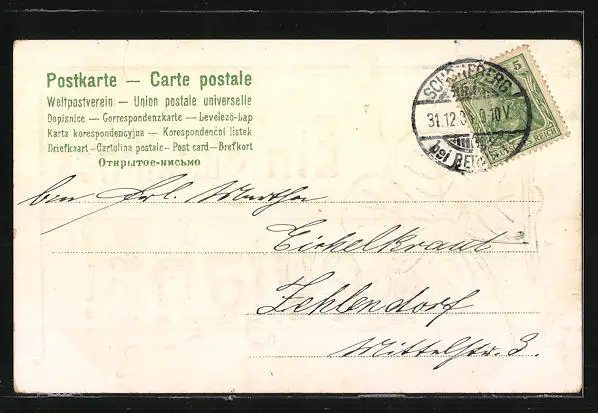 Postkarte — Carte postale
Weltpostverein — Union postale universelle
Dopisnice — Correspondenzkarte — Levelező-Lap
Karta korespondencyjna — Korespondenční lístek
Briefkaart — Cartolina postale — Post card — Brefkort
Открытое-письмо
SCHÖNEBERG
31.12.0 9-10V.
bei BERLIN
5
REICH
Frl. Martha
Eichelkraut
Zehlendorf
Mittelstr. 3.